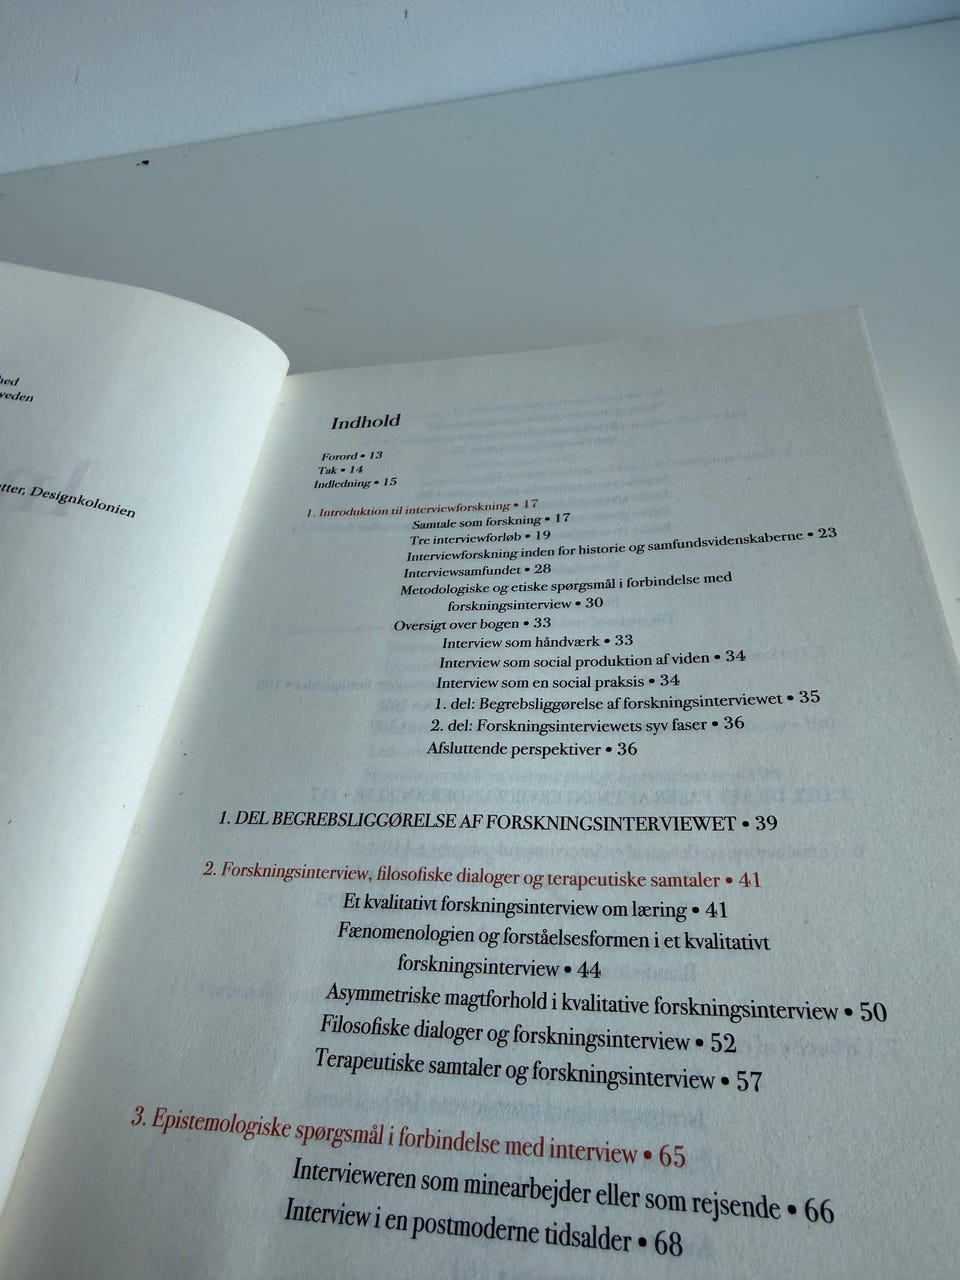 Designkolonien
Indhold
Forord • 13
Tak • 14
Indledning • 15
1. Introduktion til interviewforskning • 17
Samtale som forskning • 17
Tre interviewforløb • 19
Interviewforskning inden for historie og samfundsvidenskaberne • 23
Interviewsamfundet • 28
Metodologiske og etiske spørgsmål i forbindelse med
forskningsinterview • 30
Oversigt over bogen • 33
Interview som håndværk • 33
Interview som social produktion af viden • 34
Interview som en social praksis • 34
1. del: Begrebsliggørelse af forskningsinterviewet • 35
2. del: Forskningsinterviewets syv faser • 36
Afsluttende perspektiver • 36
1. DEL BEGREBSLIGGØRELSE AF FORSKNINGSINTERVIEWET • 39
2. Forskningsinterview, filosofiske dialoger og terapeutiske samtaler • 41
Et kvalitativt forskningsinterview om læring • 41
Fænomenologien og forståelsesformen i et kvalitativt
forskningsinterview • 44
Asymmetriske magtforhold i kvalitative forskningsinterview • 50
Filosofiske dialoger og forskningsinterview • 52
Terapeutiske samtaler og forskningsinterview • 57
3. Epistemologiske spørgsmål i forbindelse med interview • 65
Intervieweren som minearbejder eller som rejsende • 66
Interview i en postmoderne tidsalder • 68